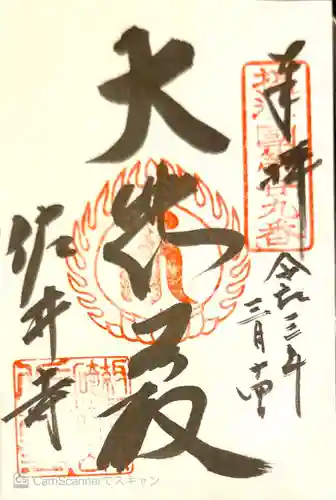 奉拝
令和三年
三月十四日
大悲殿
佐井寺
CamScannerでスキャン